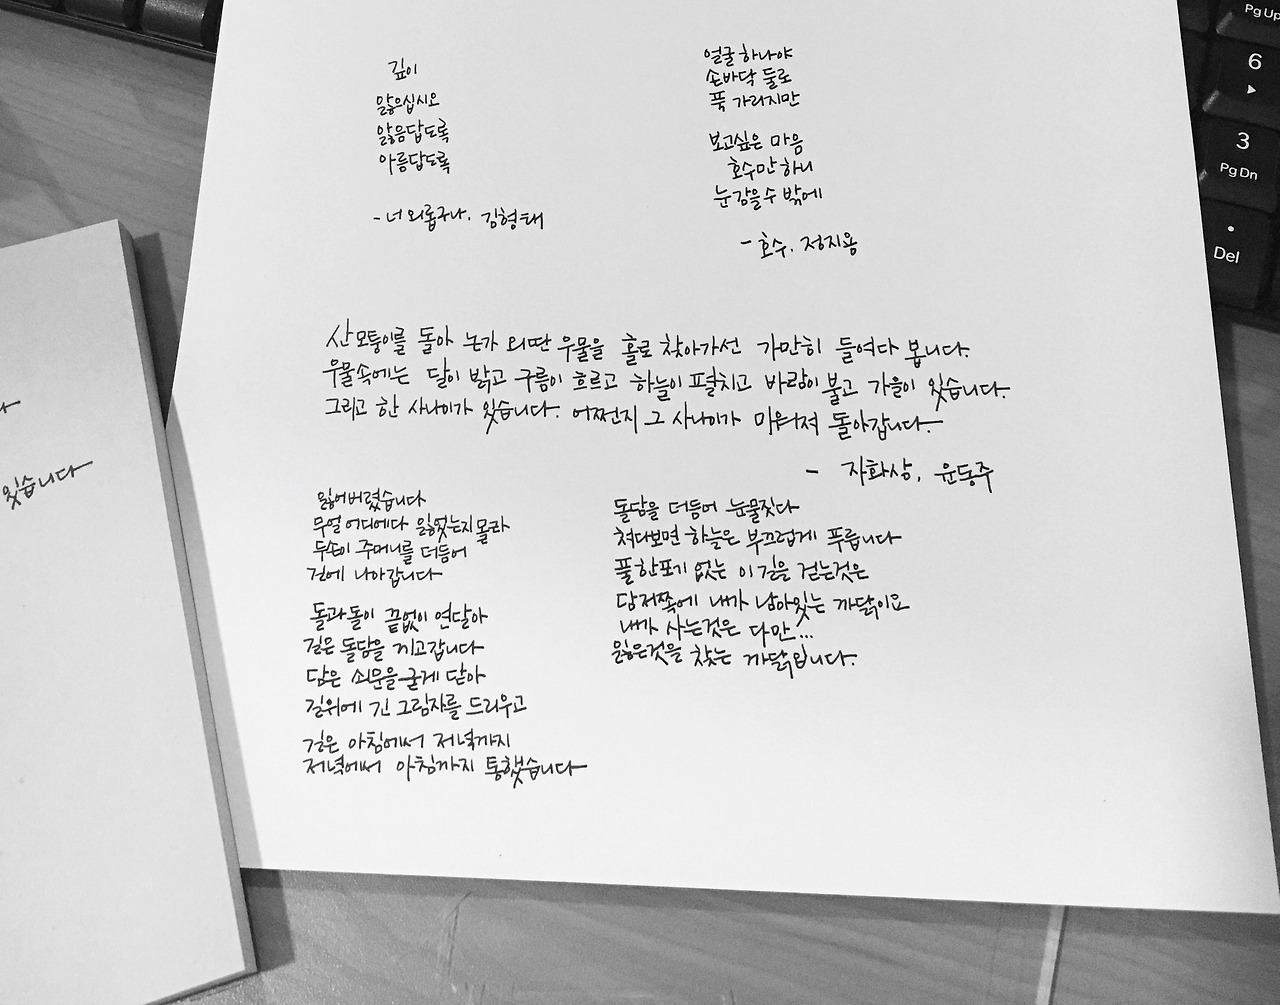 깊이
앓으십시오
앓음답도록
아름답도록
- 너 외롭구나. 김형태
얼굴 하나야
손바닥 둘로
푹 가리지만
보고싶은 마음
호수만 하니
눈 감을 수 밖에
- 호수. 정지용
산모퉁이를 돌아 논가 외딴 우물을 홀로 찾아가선 가만히 들여다 봅니다.
우물속에는 달이 밝고 구름이 흐르고 하늘이 펼치고 바람이 불고 가을이 있습니다.
그리고 한 사나이가 있습니다. 어쩐지 그 사나이가 미워져 돌아갑니다.
- 자화상, 윤동주
잃어버렸습니다
무얼 어디에다 잃었는지 몰라
두손이 주머니를 더듬어
길에 나아갑니다
돌과 돌이 끝없이 연달아
길은 돌담을 끼고갑니다
담은 쇠문을 굳게 닫아
길위에 긴 그림자를 드리우고
길은 아침에서 저녁까지
저녁에서 아침까지 통했습니다
돌담을 더듬어 눈물짓다
쳐다보면 하늘은 부끄럽게 푸릅니다
풀 한포기 없는 이 길을 걷는것은
담저쪽에 내가 남아있는 까닭이오
내가 사는것은 다만...
잃은것을 찾는 까닭입니다.
있습니다
Pg Up
6
3
Pg Dn
.
Del